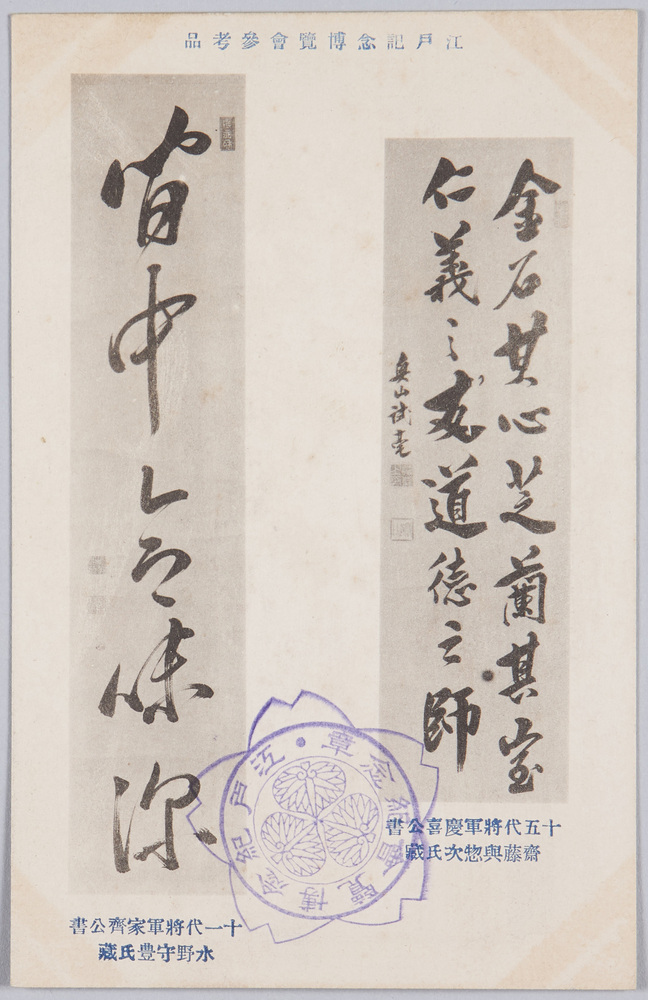 江戶記念博覽會參考品
金石其心芝蘭其室
仁義之友道德之師
興山試毫
十五代將軍慶喜公書
齋藤與惣次氏藏
中
味深
十一代將軍家齊公書
水野守豊氏藏
江戶紀念博覽會紀念章